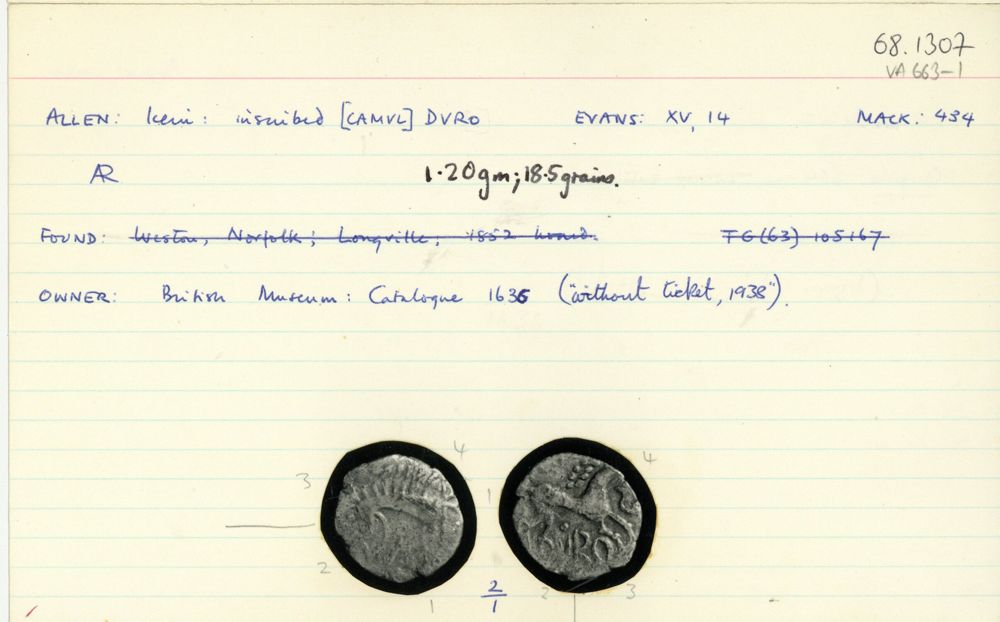 68.1307
VA 663-1
ALLEN: Iceni: inscribed [CAMVL] DVRO EVANS: XV, 14 MACK: 434
AR 1.20gm; 18.5grains.
FOUND: Weston, Norfolk; Longville; 1852 hoard. TG(63) 105167
OWNER: British Museum: Catalogue 1636 ("without ticket, 1938").
4 4
3 1
2 2 3
1 2/1